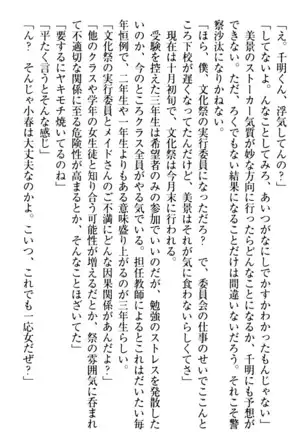 「え。千明くん、浮気してんの?」
「してないよ。んなことしてみろ、あいつがなにしでかすかわかったもんじゃない」
美景のストーカー気質が妙な方向に行ったらどんなことになるか、千明にも予想が
できない。ただ、ろくでもない結果になることだけは間違いないだろう。それこそ警
察沙汰になりかねない。
「ほら、僕、文化祭の実行委員になっただろ? で、委員会の仕事のせいでここんと
ころ下校が遅くなってたんだけど、美景はそれが気に食わないらしくてさ」
現在は十月初旬で、文化祭は今月末に行われる。
受験を控えた三年生は希望者のみの参加でいいのだが、勉強のストレスを発散した
いのか、今のところクラス全員がやる気でいる。担任教師によるとこれはだいたい毎
年恒例で、二年生や一年生よりもある意味盛り上がるのが三年生らしい。
「文化祭の実行委員とメイドさんのご不満にどんな因果関係があるの?」
「他のクラスや学年の女生徒と知り合う可能性が増えるだとか、祭の雰囲気に呑まれ
て不適切な関係に至る危険性が高まるとか、そんなことほざいてた」
「要するにヤキモチ焼いてるのね」
「平たく言うとそんな感じ」
「ん? そんなら小春は大丈夫なのかよ。こいつ、これでも一応女だぜ?」